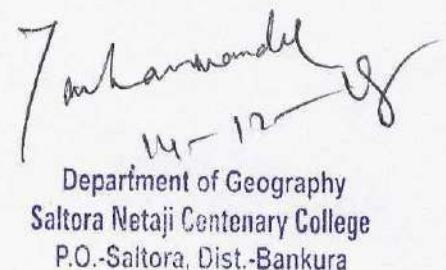 14-12-18
Department of Geography
Saltora Netaji Centenary College
P.O.-Saltora, Dist.-Bankura